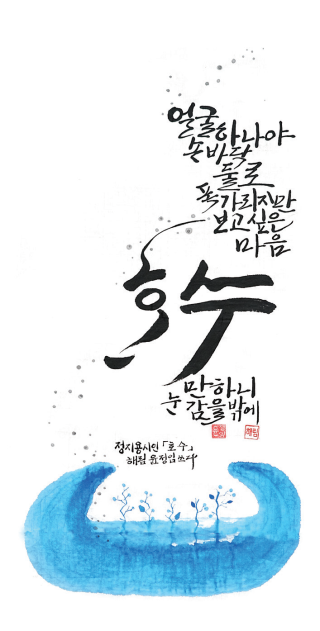 얼굴 하나야
손바닥
둘로
폭 가리지만
보고싶은
마음
호수
만 하니
눈 감을밖에
정지용시인 「호수」
해림 윤정임 쓰다